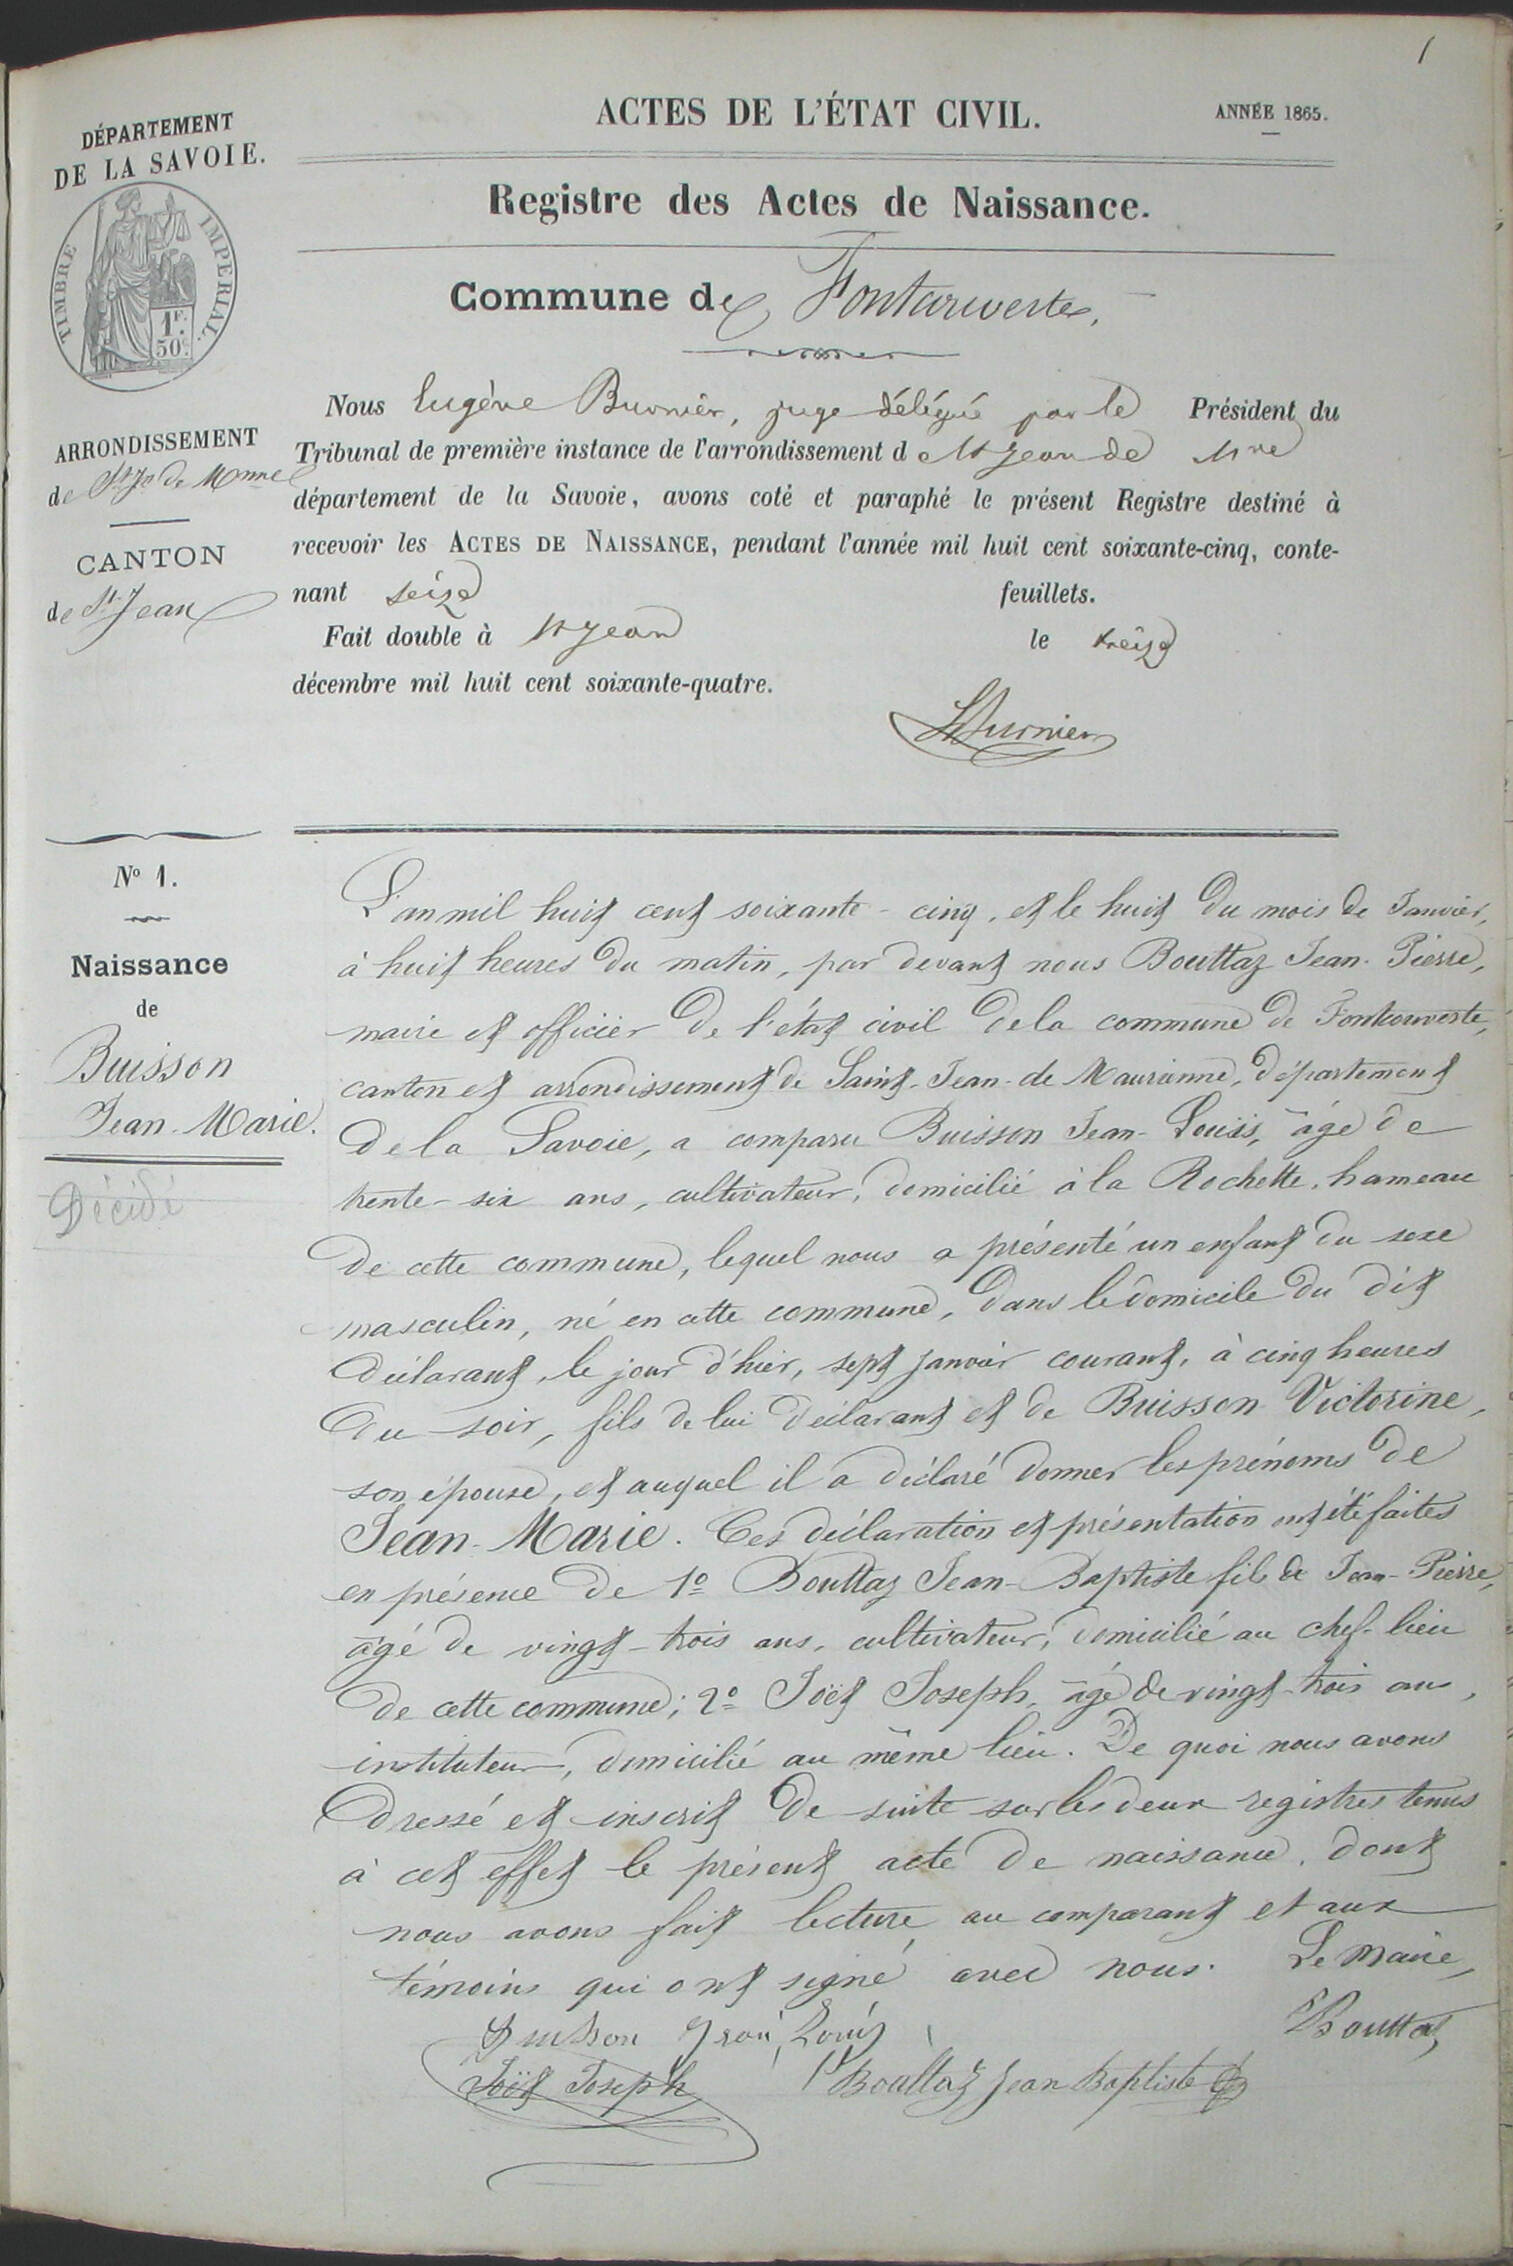 1
ACTES DE L'ÉTAT CIVIL.
ANNÉE 1865.
DÉPARTEMENT
DE LA SAVOIE.
TIMBRE IMPERIAL.
1F.
50c.
Registre des Actes de Naissance.
Commune de Fontcouverte,
ARRONDISSEMENT
de St Jn de Mnne
CANTON
de St Jean
Nous Eugène Burnier, juge délégué par le Président du
Tribunal de première instance de l'arrondissement de St Jean de Mne
département de la Savoie, avons coté et paraphé le présent Registre destiné à
recevoir les ACTES DE NAISSANCE, pendant l'année mil huit cent soixante-cinq, conte-
nant seize feuillets.
Fait double à St Jean le treize
décembre mil huit cent soixante-quatre.
Burnier
No 1.
Naissance
de
Buisson
Jean-Marie.
Décédé
L'an mil huit cent soixante-cinq, et le huit du mois de Janvier,
à huit heures du matin, par devant nous Bouttaz Jean-Pierre,
maire et officier de l'état civil de la commune de Fontcouverte,
canton et arrondissement de Saint-Jean-de Maurienne, département
de la Savoie, a comparu Buisson Jean-Louis, âgé de
trente-six ans, cultivateur, domicilié à la Rochette, hameau
de cette commune, lequel nous a présenté un enfant du sexe
masculin, né en cette commune, dans le domicile du dit
déclarant, le jour d'hier, sept janvier courant, à cinq heures
du soir, fils de lui déclarant et de Buisson Victorine,
son épouse, et auquel il a déclaré donner les prénoms de
Jean-Marie. Ces déclaration et présentation ont été faites
en présence de 1o Bouttaz Jean-Baptiste fils de Jean-Pierre,
âgé de vingt-trois ans, cultivateur, domicilié au chef-lieu
de cette commune; 2o Joët Joseph, âgé de vingt-trois ans,
instituteur, domicilié au même lieu. De quoi nous avons
dressé et inscrit de suite sur les deux registres tenus
à cet effet le présent acte de naissance, dont
nous avons fait lecture au comparant et aux
témoins qui ont signé avec nous. Le Maire,
Buisson Jean Louis Bouttaz
Joët Joseph Bouttaz Jean Baptiste